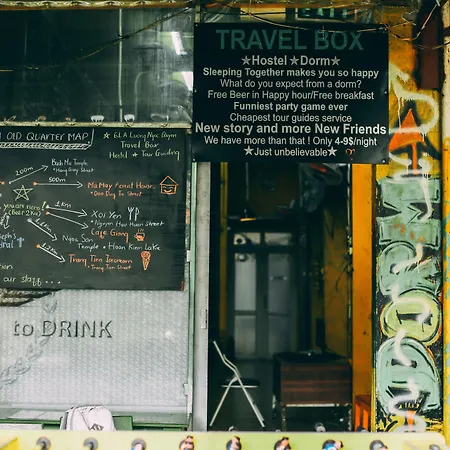 TRAVEL BOX
★Hostel ★Dorm★
Sleeping Together makes you so happy
What do you expect from a dorm?
Free Beer in Happy hour/Free breakfast
Funniest party game ever
Cheapest tour guides service
New story and more New Friends
We have more than that ! Only 4-9$/night
★Just unbelievable★
OLD QUARTER MAP
★ 61A Luong Ngoc Quyen
Travel Box
Hostel ★ Tour Guiding
Bach Ma Temple
Hang Buom Street
200m
500m
Ma May
House
Street
you are
1km
Xoi Yen
Nguyen Huu Huan Street
Cafe Giang
Ngoc Son
Temple ★ Hoan Kiem Lake
Trang Tien Icecream
Trang Tien Street
our staff
to DRINK